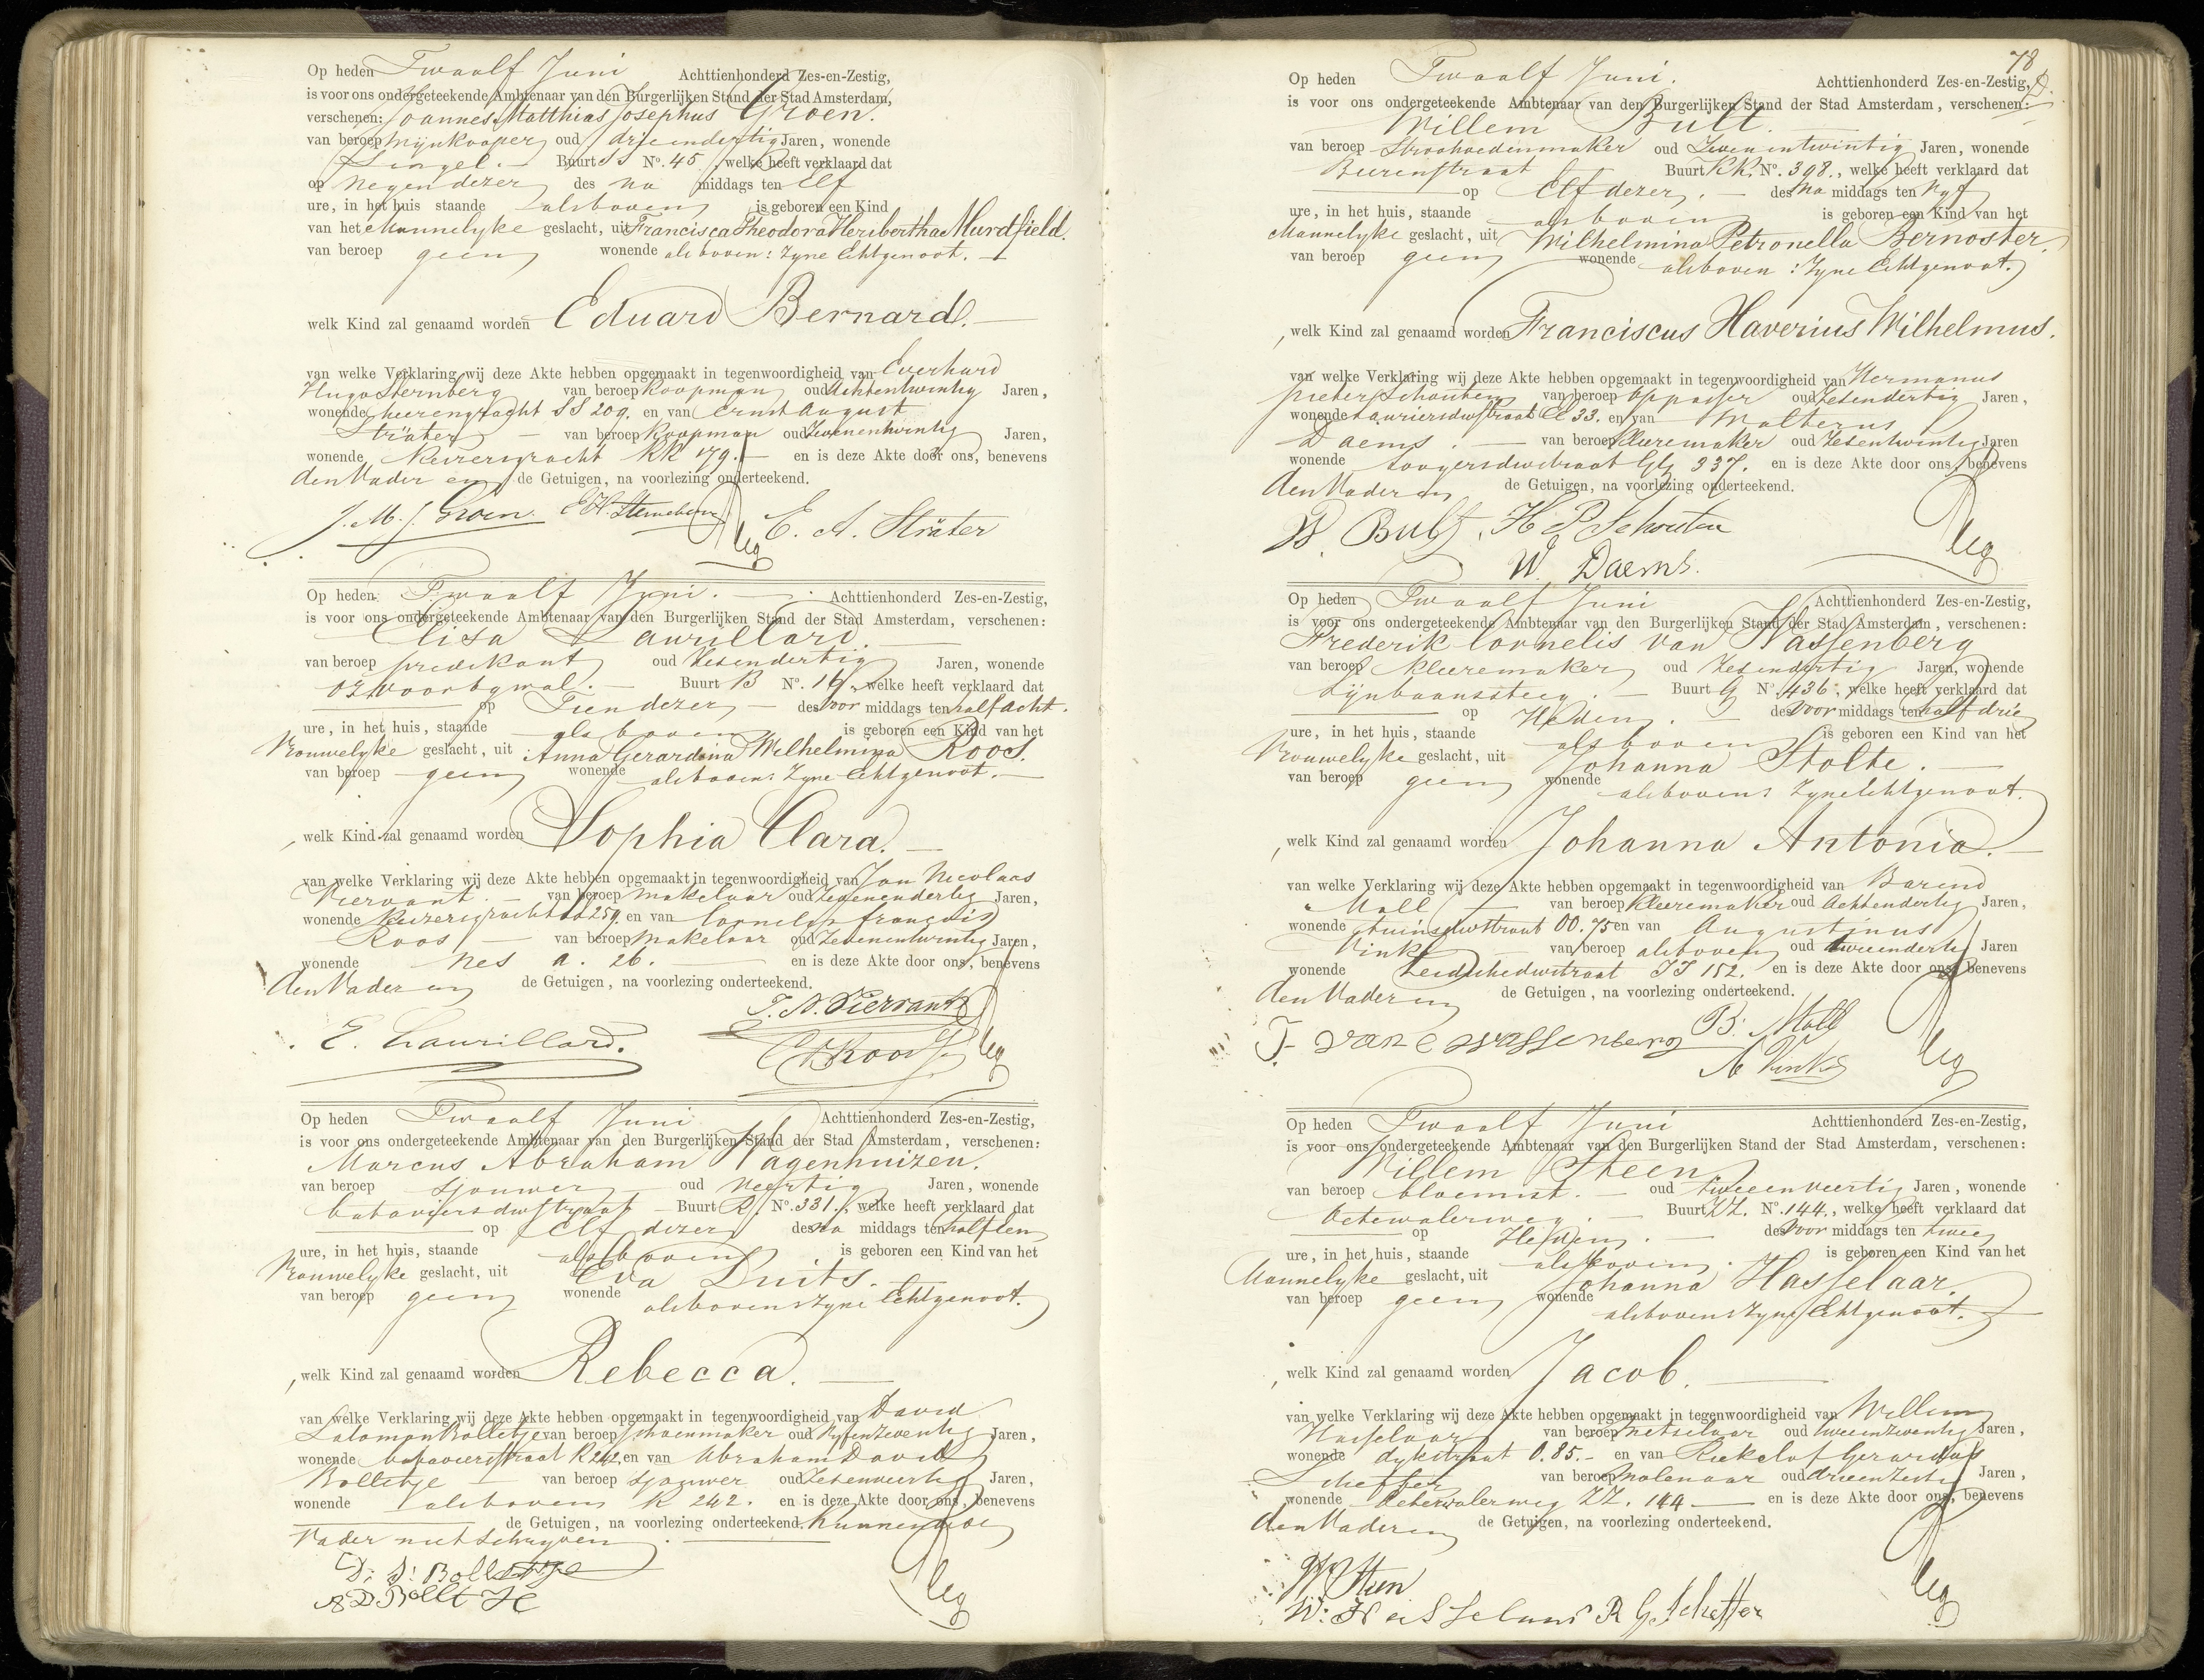 Op heden Twaalf Juni Achttienhonderd Zes-en-Zestig,
is voor ons ondergeteekende Ambtenaar van den Burgerlijken Stand der Stad Amsterdam,
verschenen: Joannes Matthias Josephus Groen.
van beroep Wijnkooper oud drieendertig Jaren, wonende
Singel. Buurt SS No. 45, welke heeft verklaard dat
op Negen dezer des na middags ten elf
ure, in het huis staande alsboven is geboren een Kind
van het Mannelyke geslacht, uit Francisca Theodora Heribertha Murdfield.
van beroep geen wonende alsboven: Zyne Echtgenoot.
welk Kind zal genaamd worden Eduard Bernard.
van welke Verklaring wij deze Akte hebben opgemaakt in tegenwoordigheid van Everhard
Hugo Sternberg van beroep Koopman oud Achtentwintig Jaren,
wonende heerengracht SS 209. en van Ernst August
Sträter van beroep Koopman oud Zevenentwintig Jaren,
wonende Keizersgracht KK 179. en is deze Akte door ons, benevens
den Vader en de Getuigen, na voorlezing onderteekend.
J. M. J. Groen. E. H. Sternberg E. A. Sträter
Op heden Twaalf Juni. Achttienhonderd Zes-en-Zestig,
is voor ons ondergeteekende Ambtenaar van den Burgerlijken Stand der Stad Amsterdam, verschenen:
Elisa Laurillard.
van beroep predikant oud Zesendertig Jaren, wonende
OZ voorbgwal. Buurt B No. 19, welke heeft verklaard dat
op Tien dezer des voor middags ten half acht.
ure, in het huis, staande alsboven is geboren een Kind van het
Vrouwelyke geslacht, uit Anna Gerardina Wilhelmina Roos.
van beroep geen wonende alsboven: Zyne Echtgenoot.
welk Kind zal genaamd worden Sophia Clara.
van welke Verklaring wij deze Akte hebben opgemaakt in tegenwoordigheid van Jan Nicolaas
Viervant. van beroep makelaar oud Zevenendertig Jaren,
wonende Keizersgracht 259. en van Cornelis françois
Roos van beroep makelaar oud Zevenentwintig Jaren,
wonende Nes A. 26. en is deze Akte door ons, benevens
den Vader en de Getuigen, na voorlezing onderteekend.
J. N. Viervant
E. Laurillard. C F Roos
Op heden Twaalf Juni Achttienhonderd Zes-en-Zestig,
is voor ons ondergeteekende Ambtenaar van den Burgerlijken Stand der Stad Amsterdam, verschenen:
Marcus Abraham Wagenhuizen.
van beroep sjouwer oud Veertig Jaren, wonende
bataviersdwstraat Buurt R. No. 331., welke heeft verklaard dat
op Elf dezer des na middags ten half tien
ure, in het huis, staande alsboven is geboren een Kind van het
Vrouwelyke geslacht, uit Eva Duits.
van beroep geen wonende alsboven: Zyne Echtgenoot.
welk Kind zal genaamd worden Rebecca.
van welke Verklaring wij deze Akte hebben opgemaakt in tegenwoordigheid van David
Salomon Bolletje van beroep schoenmaker oud Vyfenzeventig Jaren,
wonende bataviersstraat R 242, en van Abraham David
Bolletje van beroep sjouwer oud Zesenveertig Jaren,
wonende alsboven R 242. en is deze Akte door ons, benevens
de Getuigen, na voorlezing onderteekend. Kunnende de
Vader niet Schryven.
D: S: Bolletje
A D Bollt Je
78
Op heden Twaalf Juni. Achttienhonderd Zes-en-Zestig,
is voor ons ondergeteekende Ambtenaar van den Burgerlijken Stand der Stad Amsterdam, verschenen:
Willem Bult.
van beroep Stroohoedenmaker oud Zevenentwintig Jaren, wonende
Beerenstraat Buurt KK. No. 398., welke heeft verklaard dat
op Elf dezer. des Na middags ten Vyf
ure, in het huis, staande alsboven is geboren een Kind van het
Mannelyke geslacht, uit Wilhelmina Petronella Bernoster.
van beroep geen wonende alsboven: Zyne Echtgenoot.
welk Kind zal genaamd worden Franciscus Haverius Wilhelmus.
van welke Verklaring wij deze Akte hebben opgemaakt in tegenwoordigheid van Hermanus
pieter Schouten van beroep Oppasser oud Zesendertig Jaren,
wonende Lauriersdwstraat CC 33. en van Walterus
Daems. van beroep Kleeremaker oud Zesentwintig Jaren
wonende Looyersdwstraat GG 337. en is deze Akte door ons, benevens
den Vader en de Getuigen, na voorlezing onderteekend.
W. Bult, H P Schouten
W. Daems.
Op heden Twaalf Juni Achttienhonderd Zes-en-Zestig,
is voor ons ondergeteekende Ambtenaar van den Burgerlijken Stand der Stad Amsterdam, verschenen:
Frederik Cornelis van Wassenberg
van beroep Kleeremaker oud Zesendertig Jaren, wonende
Lijnbaanssteeg. Buurt G No. 436., welke heeft verklaard dat
op Heden. des Voor middags ten half drie
ure, in het huis, staande alsboven is geboren een Kind van het
Vrouwelyke geslacht, uit Johanna Stolte.
van beroep geen wonende alsboven: Zyne Echtgenoot.
welk Kind zal genaamd worden Johanna Antonia.
van welke Verklaring wij deze Akte hebben opgemaakt in tegenwoordigheid van Barend
Moll van beroep Kleeremaker oud Achtendertig Jaren,
wonende tuinsdwstraat OO. 75 en van Augustinus
Vinks van beroep alsboven oud tweendertig Jaren
wonende Leidschedwstraat II 152. en is deze Akte door ons, benevens
den Vader en de Getuigen, na voorlezing onderteekend.
F. van Wassenberg B: Moll
A Vinks
Op heden Twaalf Juni Achttienhonderd Zes-en-Zestig,
is voor ons ondergeteekende Ambtenaar van den Burgerlijken Stand der Stad Amsterdam, verschenen:
Willem Steen
van beroep bloemist. oud tweeenveertig Jaren, wonende
Oetewalerweg. Buurt ZZ. No. 144., welke heeft verklaard dat
op Heden. des Voor middags ten twee
ure, in het huis, staande alsboven. is geboren een Kind van het
Mannelyke geslacht, uit Johanna Hasselaar.
van beroep geen wonende alsboven: Zyne Echtgenoot.
welk Kind zal genaamd worden Jacob.
van welke Verklaring wij deze Akte hebben opgemaakt in tegenwoordigheid van Willem
Hasselaar van beroep Metselaar oud tweenzeventig Jaren,
wonende dykstraat O. 85. en van Roekelof Gerardus
Scheffer van beroep Molenaar oud drieenzestig Jaren,
wonende Oetewalerweg ZZ. 144 en is deze Akte door ons, benevens
den Vader en de Getuigen, na voorlezing onderteekend.
W Steen
W: Hasselaar R G Scheffer